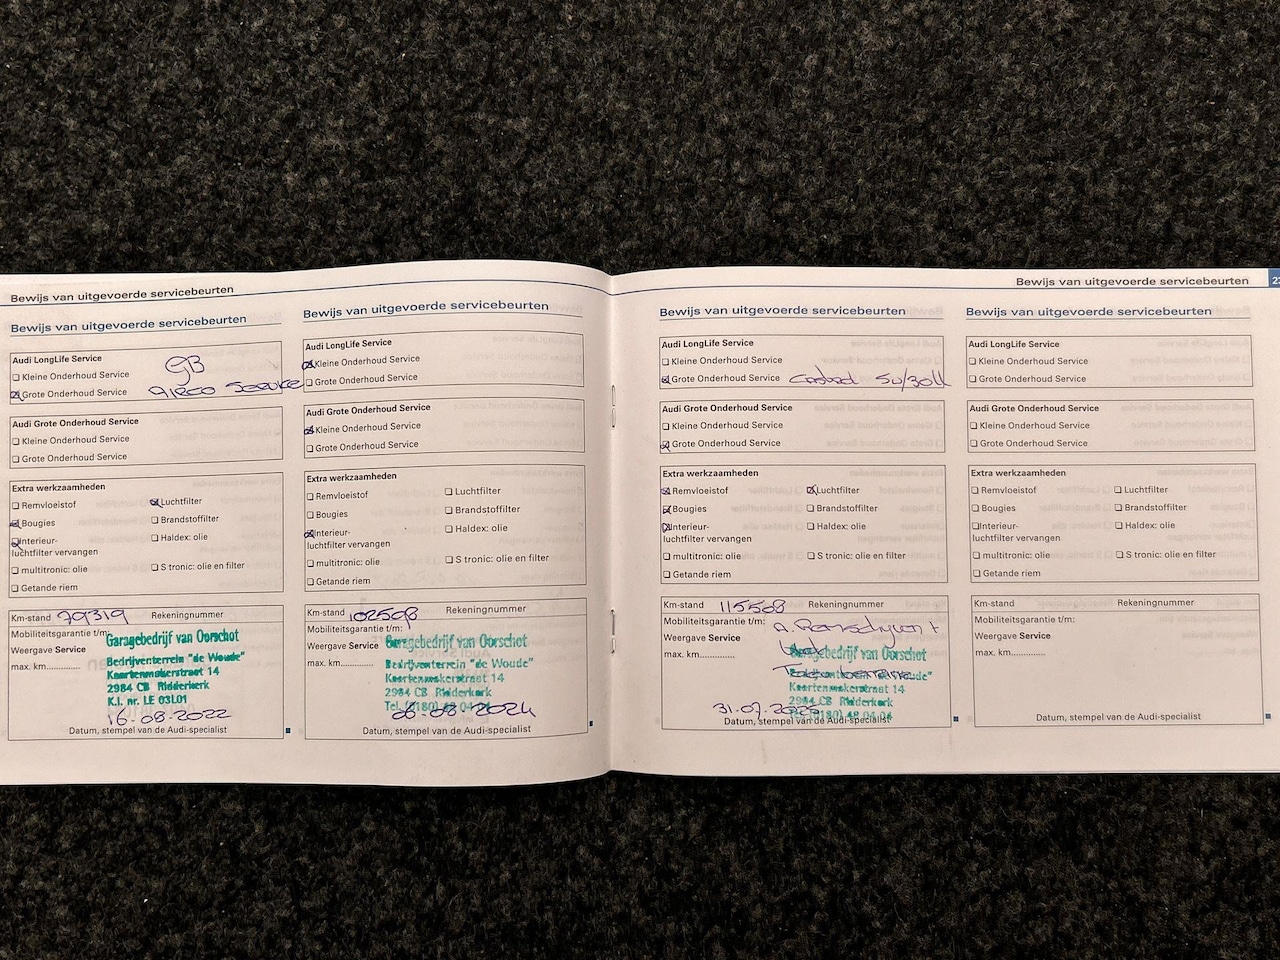 Bewijs van uitgevoerde servicebeurten
Bewijs van uitgevoerde servicebeurten
Audi LongLife Service
❏ Kleine Onderhoud Service
GB
❏ Grote Onderhoud Service
Airco Service
Audi Grote Onderhoud Service
❏ Kleine Onderhoud Service
❏ Grote Onderhoud Service
Extra werkzaamheden
❏ Remvloeistof
❏ Luchtfilter
❏ Bougies
❏ Brandstoffilter
❏ Interieur-
luchtfilter vervangen
❏ Haldex: olie
❏ multitronic: olie
❏ S tronic: olie en filter
❏ Getande riem
Km-stand 79319 Rekeningnummer
Mobiliteitsgarantie t/m:
Weergave Service
max. km..............
Garagebedrijf van Oorschot
Bedrijventerrein "de Woude"
Kaartenmakerstraat 14
2984 CB Ridderkerk
K.I. nr. LE 03L01
16-08-2022
Datum, stempel van de Audi-specialist
Bewijs van uitgevoerde servicebeurten
Audi LongLife Service
❏ Kleine Onderhoud Service
❏ Grote Onderhoud Service
Audi Grote Onderhoud Service
❏ Kleine Onderhoud Service
❏ Grote Onderhoud Service
Extra werkzaamheden
❏ Remvloeistof
❏ Luchtfilter
❏ Bougies
❏ Brandstoffilter
❏ Interieur-
luchtfilter vervangen
❏ Haldex: olie
❏ multitronic: olie
❏ S tronic: olie en filter
❏ Getande riem
Km-stand 102598 Rekeningnummer
Mobiliteitsgarantie t/m:
Weergave Service
max. km..............
Garagebedrijf van Oorschot
Bedrijventerrein "de Woude"
Kaartenmakerstraat 14
2984 CB Ridderkerk
Tel. (0180) 42 04 04
08-2024
Datum, stempel van de Audi-specialist
Bewijs van uitgevoerde servicebeurten 23
Bewijs van uitgevoerde servicebeurten
Audi LongLife Service
❏ Kleine Onderhoud Service
❏ Grote Onderhoud Service
Audi Grote Onderhoud Service
❏ Kleine Onderhoud Service
❏ Grote Onderhoud Service
Extra werkzaamheden
❏ Remvloeistof
❏ Luchtfilter
❏ Bougies
❏ Brandstoffilter
❏ Interieur-
luchtfilter vervangen
❏ Haldex: olie
❏ multitronic: olie
❏ S tronic: olie en filter
❏ Getande riem
Km-stand 115508 Rekeningnummer
Mobiliteitsgarantie t/m:
Weergave Service
max. km..............
Garagebedrijf van Oorschot
Bedrijventerrein "de Woude"
Kaartenmakerstraat 14
2984 CB Ridderkerk
Tel. (0180) 42 04 04
31-07-2025
Datum, stempel van de Audi-specialist
Bewijs van uitgevoerde servicebeurten
Audi LongLife Service
❏ Kleine Onderhoud Service
❏ Grote Onderhoud Service
Audi Grote Onderhoud Service
❏ Kleine Onderhoud Service
❏ Grote Onderhoud Service
Extra werkzaamheden
❏ Remvloeistof
❏ Luchtfilter
❏ Bougies
❏ Brandstoffilter
❏ Interieur-
luchtfilter vervangen
❏ Haldex: olie
❏ multitronic: olie
❏ S tronic: olie en filter
❏ Getande riem
Km-stand Rekeningnummer
Mobiliteitsgarantie t/m:
Weergave Service
max. km..............
Datum, stempel van de Audi-specialist